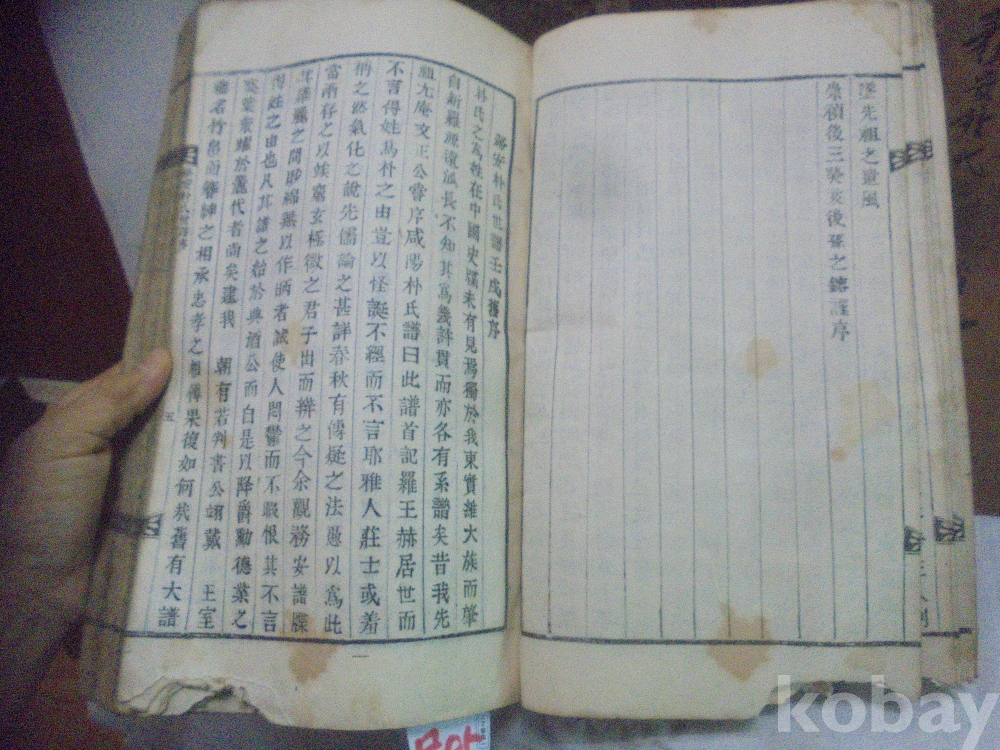 先祖之遺風
崇禎後三癸亥後孫之謹序
務安朴氏世譜壬戌舊序
朴氏之爲姓在中國史牒未有見焉獨於我東實維大族而肇
自新羅源遠流長不知其爲幾許貫而亦各有系譜矣昔我先
祖尤庵文正公嘗序咸陽朴氏譜曰此譜首記羅王赫居世而
不言得姓爲朴之由豈以怪誕不經而不言耶雅人莊士或羞
稱之然氣化之說先儒論之甚詳春秋有傳疑之法愚以爲此
當兩存之以俟窮玄極微之君子出而辨之今余觀務安譜牒
羅麗之間眇綿無以作昞者誠使人悶鬱而不暇恨其不言
得姓之由也凡其譜之始於典酒公而自是以降爵勳德業之
奕葉耀於麗代者尙矣逮我 朝有若判書公翊戴 王室
垂名竹帛而簪紳之相承忠孝之相傳果復如何哉舊有大譜
五
kobay